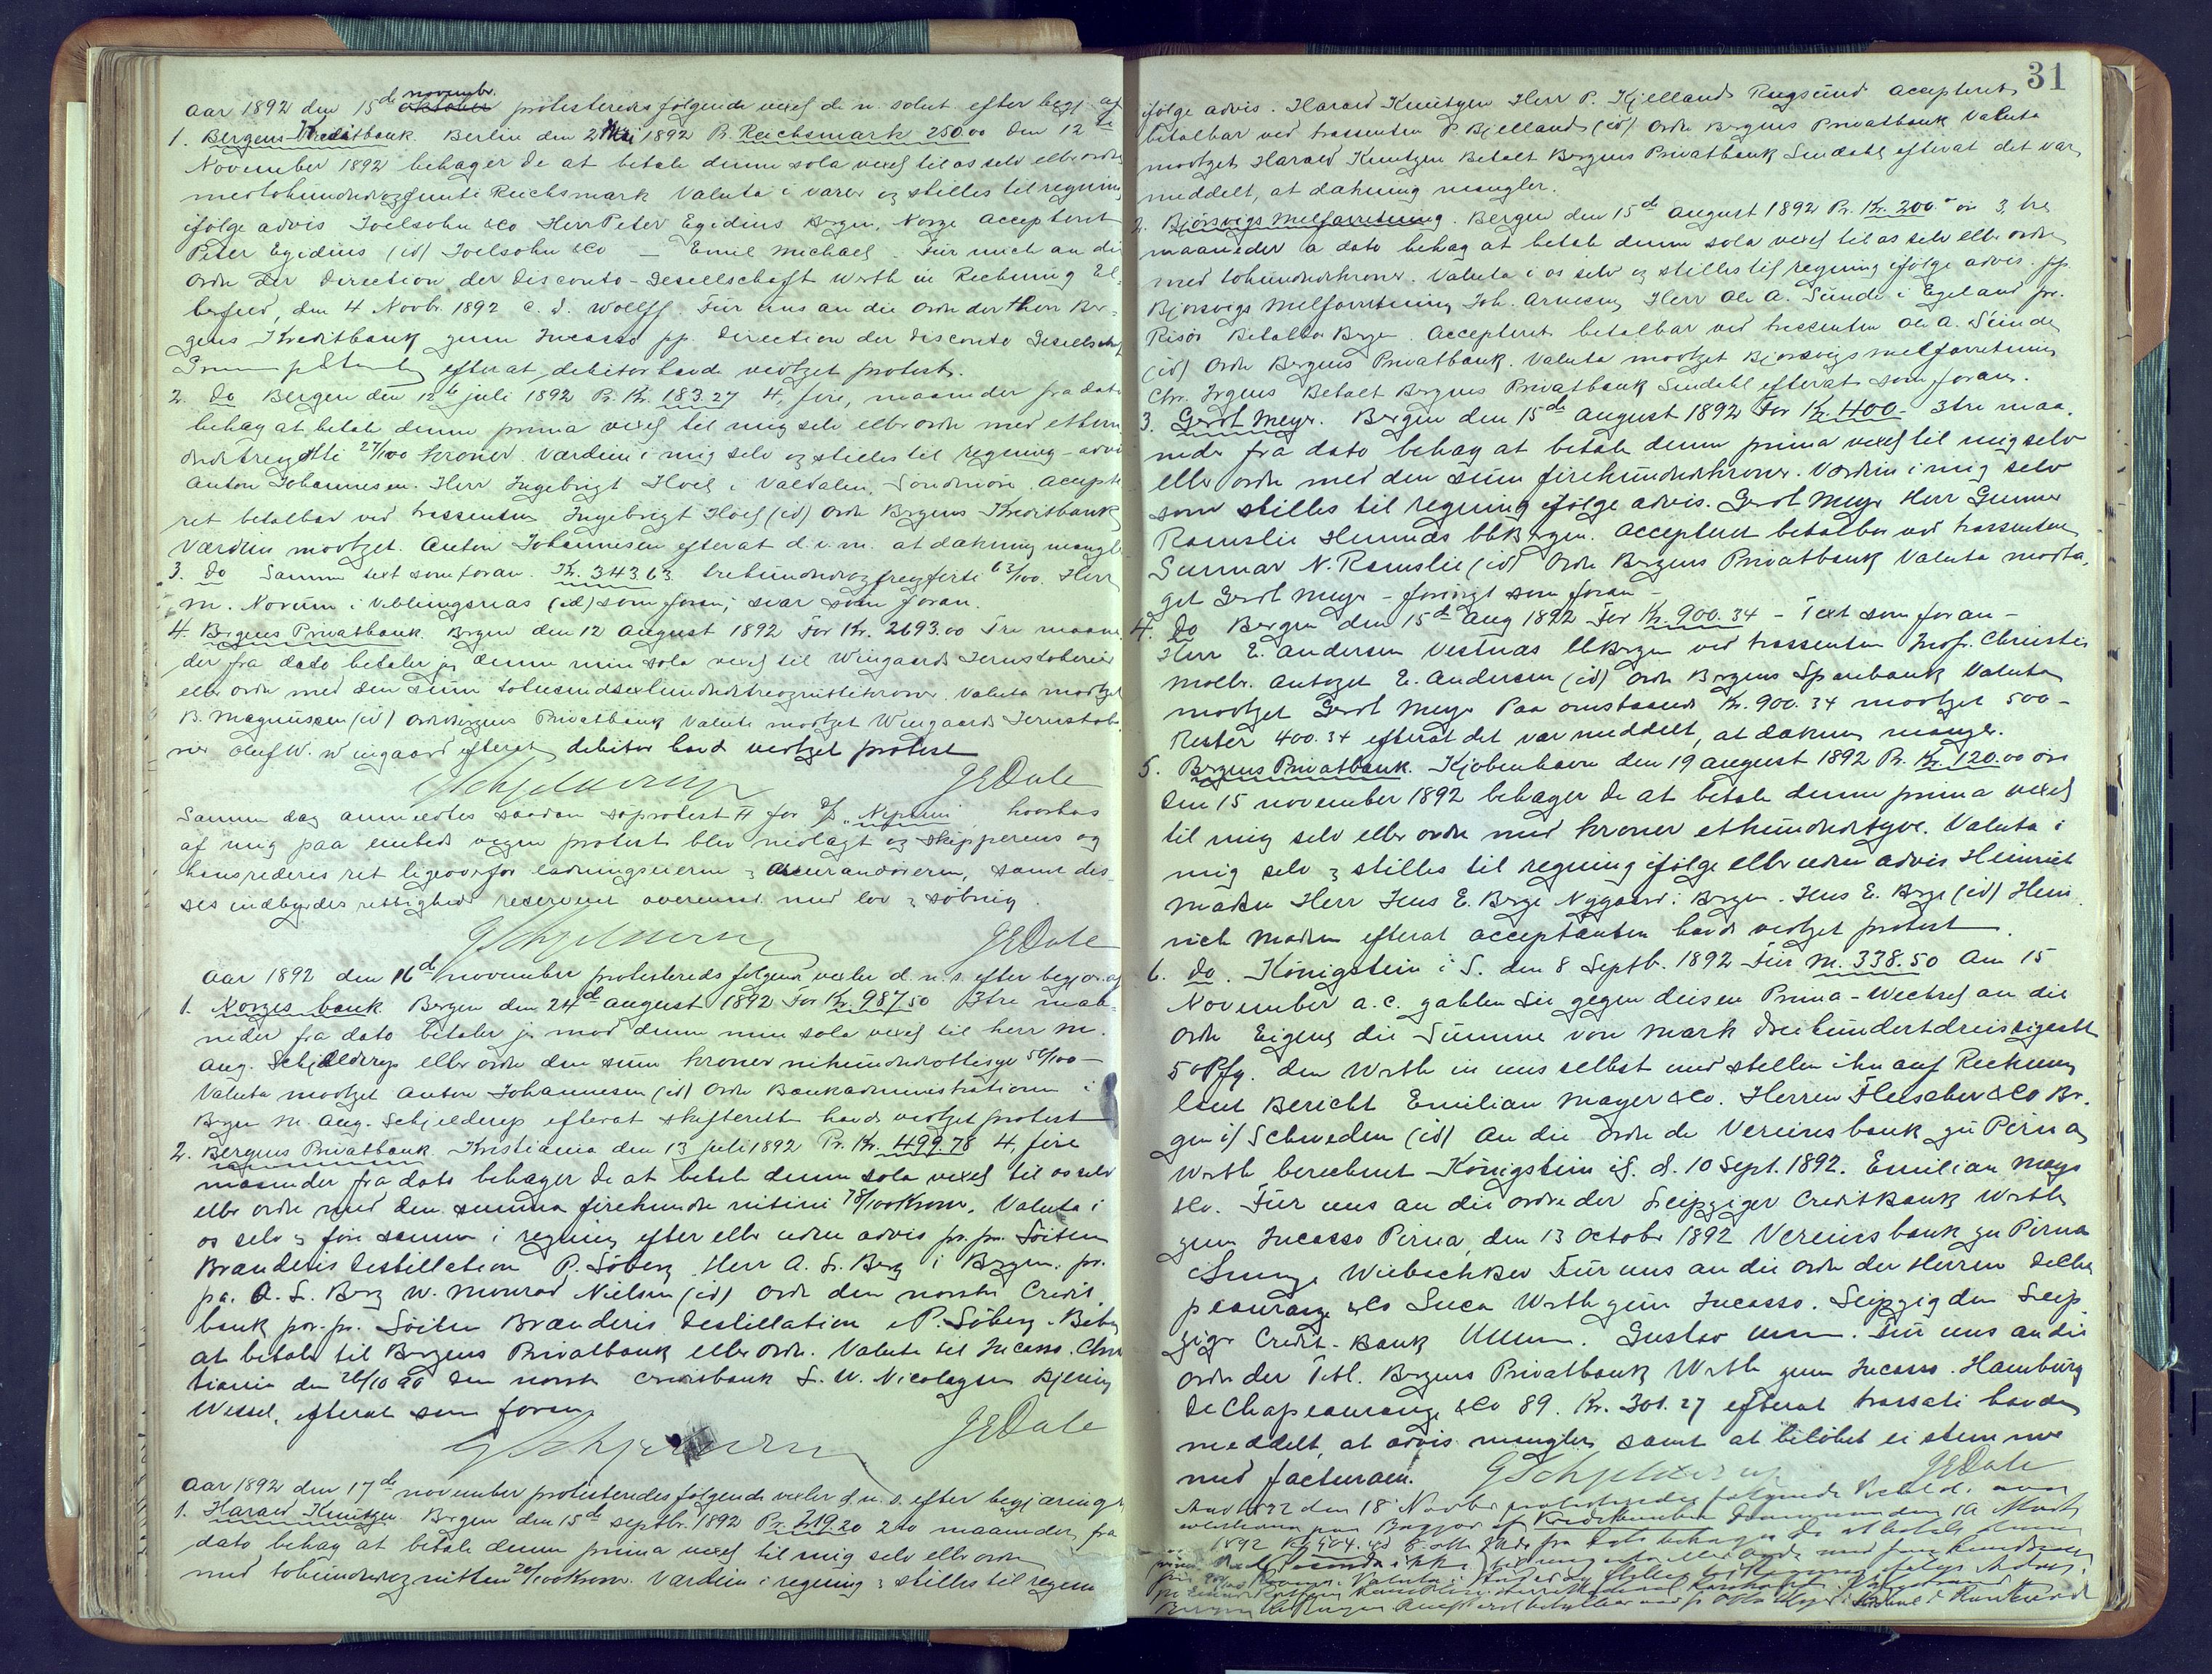 novembr.
Aar 1892 den 15de oktober protesteredes følgende vexel d. n. solut. efter begj. af
1. Bergens Kreditbank. Berlin den 2 Mai 1892 Pr. Reichsmark 250.00 Den 12te
November 1892 behager De at betale denne sola vexel til os selv eller ordre
med tohundredeogfemti Reichsmark Valuta i varer og stilles til regning
ifølge advis Joelsohn & Co Herr Peter Egidius Bergen, Norge Accepteret
Peter Egidius (id) Joelsohn & Co — Emil Michael. Für mich an die
Ordre der Direction der Disconto-Gesellschaft Werth in Rechnung El-
berfeld, den 4 Novbr. 1892 C. S. Wolff. Für uns an die Ordre der Herren Ber-
gens Kreditbank zum Incasso pp. Direction der Disconto Gesellschaft
efterat debitor havde vedtget protest.
2. Do Bergen den 12te juli 1892 Pr. Kr. 183.27 4, fire, maaneder fra dato
behag at betale denne prima vexel til mig selv eller ordre med ethun-
dredetreogotti 27/100 kroner. Værdien i mig selv og stilles til regning - advis
Anton Johannesen. Herr Ingebrigt Hoel i Valdalen, Søndmøre. Accepte
ret betalbar ved trassenten Ingebrigt Hoel (id) Ordre Bergens Kreditbank
Værdien modtget. Anton Johannesen efterat d. v. m. at dækning mangle
3. Do Samme text som foran. Kr. 343.63 trehundredeogtreogførti 63/100. Herr
M. Novum i Veblungsnæs (id) som foran; svar som foran.
4. Bergens Privatbank. Bergen den 12 August 1892 For Kr. 2693.00 Tre maane
der fra dato betaler jeg denne min sola vexel til Wingaards Jernstøberier
eller ordre med den sum totusendsexhundredetreognittikroner. Valuta modtget
B. Magnussen (id) Ordre Bergens Privatbank Valuta modtget Wingaards Jernstøbe-
rier Oluf W. Wingaard efterat debitor havd vedtget protest
GSchjelderup JEDale
Samme dag anmeldtes saadan søprotest # for D/S "Neptun" hvorhos
af mig paa embeds vegne protest blev nedlagt og skipperens og
hans rederis ret ligeoverfor ladningseierne & assurandørerne, samt des-
ses indbyrdes rettigheder reserveret overensst. med lov & søbrug.
GSchjelderup JEDale
Aar 1892 den 16de november protesteredes følgende vexler d. n. s. efter begjær. af
1. Norges bank Bergen den 24de august 1892 For Kr. 987.50 3tre maa-
neder fra dato betaler jeg mod denne min sola vexel til herr M.
Aug. Schjelderup eller ordre den sum kroner nihundredeottisyv 50/100 —
Valuta modtget Anton Johannesen (id) Ordre Bankadministrationen i
Bergen M. Aug. Schjelderup efterat skifteretten havde vedtget protest
2. Bergens Privatbank. Kristiania den 13 Juli 1892 Pr. Kr. 499.78 4, fire
maaneder fra dato behager De at betale denne sola vexel til os selv
eller ordre med den summa firehundre nitini 78/100 Kroner. Valuta i
os selv & føre samme i regning efter eller uden advis pr. pr. Søiten
Brænderis Destillation P. Søberg Herr A. S. Berg i Bergen. pr.
pa. A. S. Berg W. Monrad Nielsen (id) Ordre den norske Credit-
bank pr. pr. Søiten Brænderis Destillation P. Søberg. Behag
at betale til Bergens Privatbank eller Ordre. Valuta til Incasso. Chris
tiania den 26/10 90 Den norske Creditbank S. W. Nicolaysen Bjering
Wessel, efterat som foran.
GSchjelderup JEDale
Aar 1892 den 17de november protesteredes følgende vexler d. n. s. efter begjæring af
1. Harald Knutzen Bergen den 15de septbr. 1892 Pr. 219.20 2to maaneder fra
dato behag at betale denne prima vexel til mig selv eller ordre
med tohundredeognitten 20/100 Kroner. Værdien i regning & stilles til regning
31
ifølge advis. Harald Knutzen Herr P. Kjelland Rugsund accepteret
betalbar ved trassenten P Bjelland (id) Ordre Bergens Privatbank Valuta
modtget Harald Knutzen Betalt Bergens Privatbank Lindahl efterat det var
meddelt, at dækning mangler.
2. Bjørsvigs Melforretning. Bergen den 15de august 1892 Pr. Kr. 200.- øre 3, tre
maaneder a dato behag at betale denne sola vexel til os selv eller ordre
med tohundredekroner. Valuta i os selv og stilles til regning ifølge advis. pp
Bjørsvigs Melforretning Joh. Arnesen Herr Ole A. Sunde i Egeland pr.
Risør Betalbar Bergen. Accepteret betalbar ved trassenten Ole A. Sunde
(id) Ordre Bergens Privatbank. Valuta modtget Bjørsvigs melforretning
Chr. Irgens Betalt Bergens Privatbank Lindahl efterat som foran.
3. Gerdt Meyer. Bergen den 15de august 1892 For Kr. 400- 3tre maa-
neder fra dato behag at betale denne prima vexel til mig selv
eller ordre med den sum firehundredekroner. Værdien i mig selv
som stilles til regning ifølge advis. Gerdt Meyer Herr Gunnar
Ramslie Hennæs Bergen. Accepteret betalbar ved trassenten
Gunnar N. Ramslie (id) Ordre Bergens Privatbank Valuta modta-
get Gerdt Meyer - forøvrigt som foran -
4. Do Bergen den 15de Aug 1892 For Kr. 900.34 - Text som foran -
Herr E. Andersen Vestnæs Bergen ved trassenten Christie
Antaget E. Andersen (id) Ordre Bergens Sparebank Valuta
modtget Gerdt Meyer Paa omstaaende Kr. 900.34 modtget 500 -
Rester 400.34 efterat det var meddelt, at dækning mangler.
5. Bergens Privatbank. Kjøbenhavn den 19 august 1892 Pr. Kr. 120.00 øre
Den 15 november 1892 behager De at betale denne prima vexel
til mig selv eller ordre med kroner ethundredetyve. Valuta i
mig selv & stilles til regning ifølge eller uden advis Heinrich
Madsen Herr Jens E. Berge Nygaard i Bergen. Jens E. Berge (id) Hein-
rich Madsen efterat acceptanten havde vedtget protest.
6. Do. Königstein i S. den 8 Septb. 1892 Für M. 338.50 Am 15
November a. c. zahlen Sie gegen diesen Prima-Wechsel an die
Ordre Eigene die Summe von Mark dreihundertdreissigacht
50 Pfg. den Werth in uns selbst und stellen ihn auf Rechnung
laut Bericht Emilian Mayer & Co. Herren Fleischer & Co Ber-
gen i/ Schweden (id) An die Ordre de Vereinsbank zu Pirna
Werth berechnet Königstein i/S. d. 10 Sept. 1892. Emilian Mayer
& Co. Für uns an die Ordre der Leipziger Creditbank Werth
zum Incasso Pirna, den 13 Octobr 1892 Vereinsbank zu Pirna
Wiebschker Für uns an die Ordre der Herren Decha
peaurouge & Co Luca Werth zum Incasso. Leipzig den Leip-
ziger Credit-Bank. Gustav. Für uns an die
Ordre der Titl. Bergens Privatbank Werth zum Incasso. Hamburg
De Chapeaurouge & Co 89. Kr. 301.27 efterat trassati havde
meddelt, at advis mangler, samt at beløbet ei stemme
med facturaen. GSchjelderup JEDale
Aar 1892 den 18 Novbr. protesteredes følgende
paa Begjær. af Kreditbanken den 19 Marts
1892 8. otte fra Dato behager De at betale denne